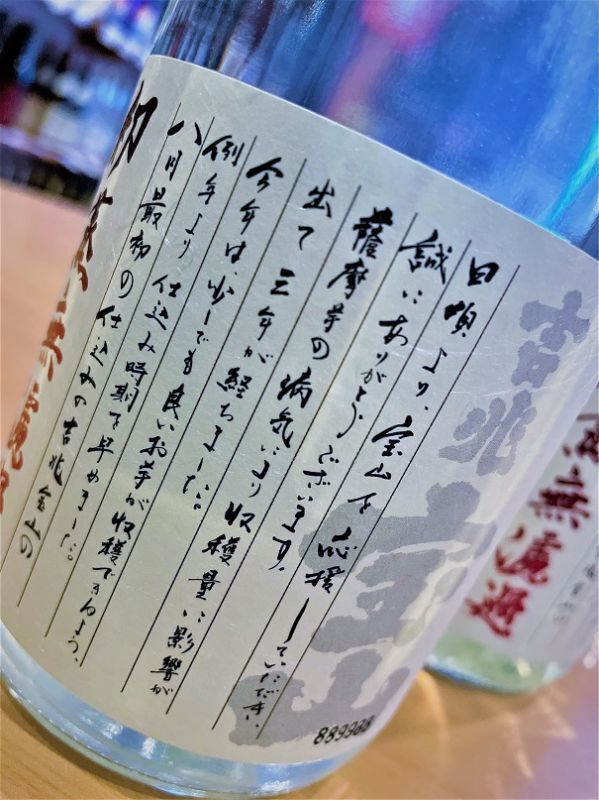 吉兆宝山
日頃より、宝山を応援していただき、
誠にありがとうございます。
薩摩芋の病気により収穫量に影響が
出て三年が経ちました。
今年は、少しでも良いお芋が収穫できるよう、
例年より仕込み時期を早めました。
八月最初の仕込みの吉兆宝山の
初蒸溜無濾過
889988
無濾過